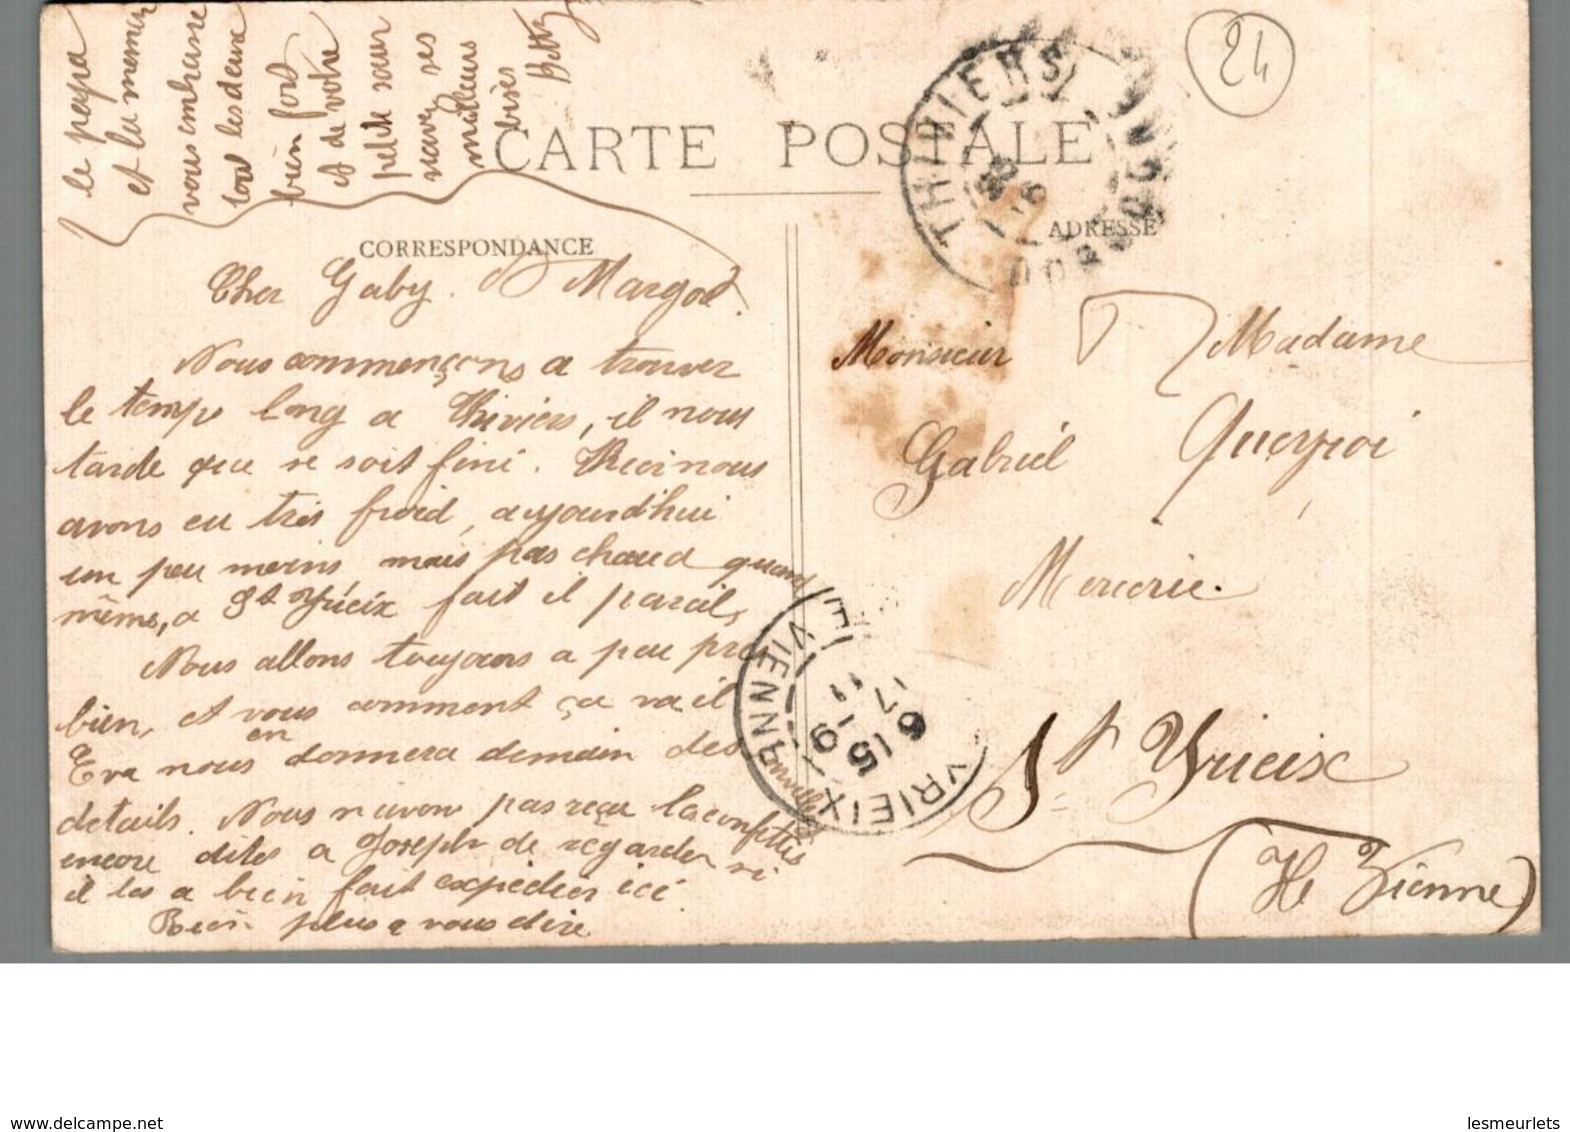 le papa
et la maman
vous embrasse
tous les deux
bien fort
et de votre
petite sœur
recevez ses
meilleurs
bises
Betty
CARTE POSTALE
24
THIVIERS
DORDOGNE
CORRESPONDANCE
ADRESSE
Cher Gaby et Margot.
Nous commençons a trouver
le temps long a Thiviers, il nous
tarde que se soit fini. Ici nous
avons eu très froid, aujourd'hui
un peu moins mais pas chaud quand
même, a St Yrieix fait il pareil,
Nous allons toujours a peu près
bien, et vous comment ça va il
Eva nous en donnera demain des nouvelles
détails. Nous n'avons pas reçu la confettis
encore dites a Joseph de regarder si
il les a bien fait expédier ici
Rien plus a vous dire
Monsieur et Madame
Gabriel Queyroi
Mercerie.
St Yrieix
(Hte Vienne)
YRIEIX
VIENNE
delcampe.net
lesmeurlets